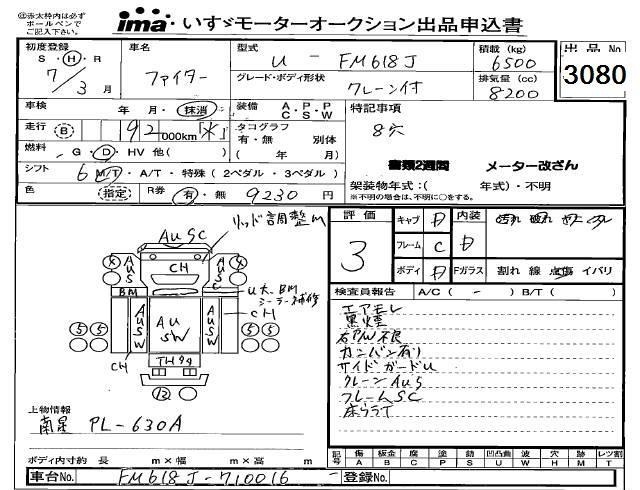 ◎赤太枠内は必ず
ボールペンで
ご記入下さい。
ima いすゞモーターオークション出品申込書
初度登録 車名 型式 U - FM618J 積載 (kg) 6500 出品 No
S・H・R 7/3 月 ファイター グレード・ボディ形状 クレーン付 排気量 (cc) 8200 3080
車検 年 月・抹消 装備 A・P・P C S W 特記事項
走行 (B) 92,000km「*」 タコグラフ 有・無 別体 8穴
燃料 G・D・HV 他( ) ( 年 月) 書類2週間 メーター改ざん
シフト 6 M/T・A/T・特殊 (2ペダル・3ペダル) 架装物年式:( 年式)・不明
色 (指定) R券 有・無 9230 円 ※不明の場合は、不明に○をする。
リッド調整ム
評価 3 キャブ D 内装 D 汚れ 破れ
フレーム C
ボディ D Fガラス 割れ 線 点傷 イバリ
検査員報告 A/C ( - ) B/T ( )
AU SC
CH
AUS AUS
BM
U大、BM
シーラー補修
CH
AUSW AU SW AUSW
TH99
CH
5 5 5 5
12
エアモレ
黒煙
右P/W不良
カンバン有り
サイドガードU
クレーンAUS
フレームSC
床うライ
上物情報
南星 PL-630A
ボディ内寸約 長 m×幅 m×高 m
記号 傷 A 板金 B 腐 C 塗 P 錆 S 凹凸曲 U 波 W 穴 H 跡 M レツ割 T
車台No. FM618J-710016 登録No.